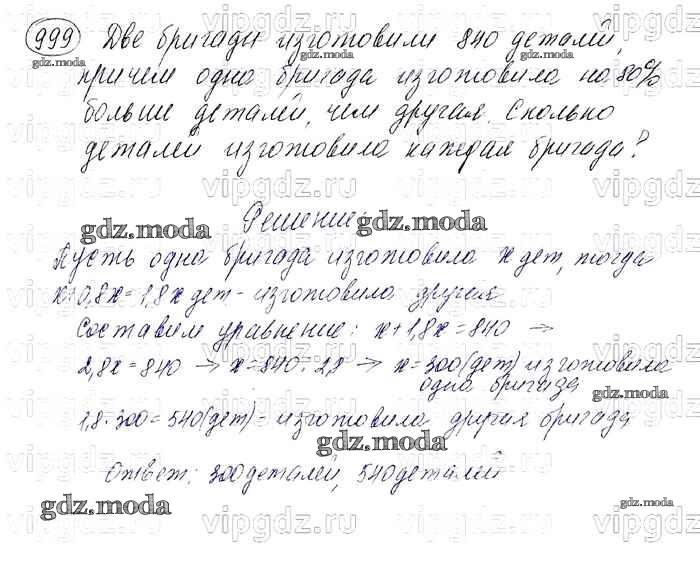 999 Две бригады изготовили 840 деталей,
причем одна бригада изготовила на 80%
больше деталей, чем другая. Сколько
деталей изготовила каждая бригада?
Решение
Пусть одна бригада изготовила x дет, тогда
x+0,8x=1,8x дет - изготовила другая
Составим уравнение: x+1,8x=840 →
2,8x=840 → x=840:2,8 → x=300(дет) изготовила
одна бригада
1,8·300=540(дет)- изготовила другая бригада
Ответ: 300 деталей, 540 деталей
gdz.moda
gdz.moda
gdz.moda
gdz.moda
gdz.moda
gdz.moda
gdz.moda
gdz.moda
gdz.moda
vipgdz.ru